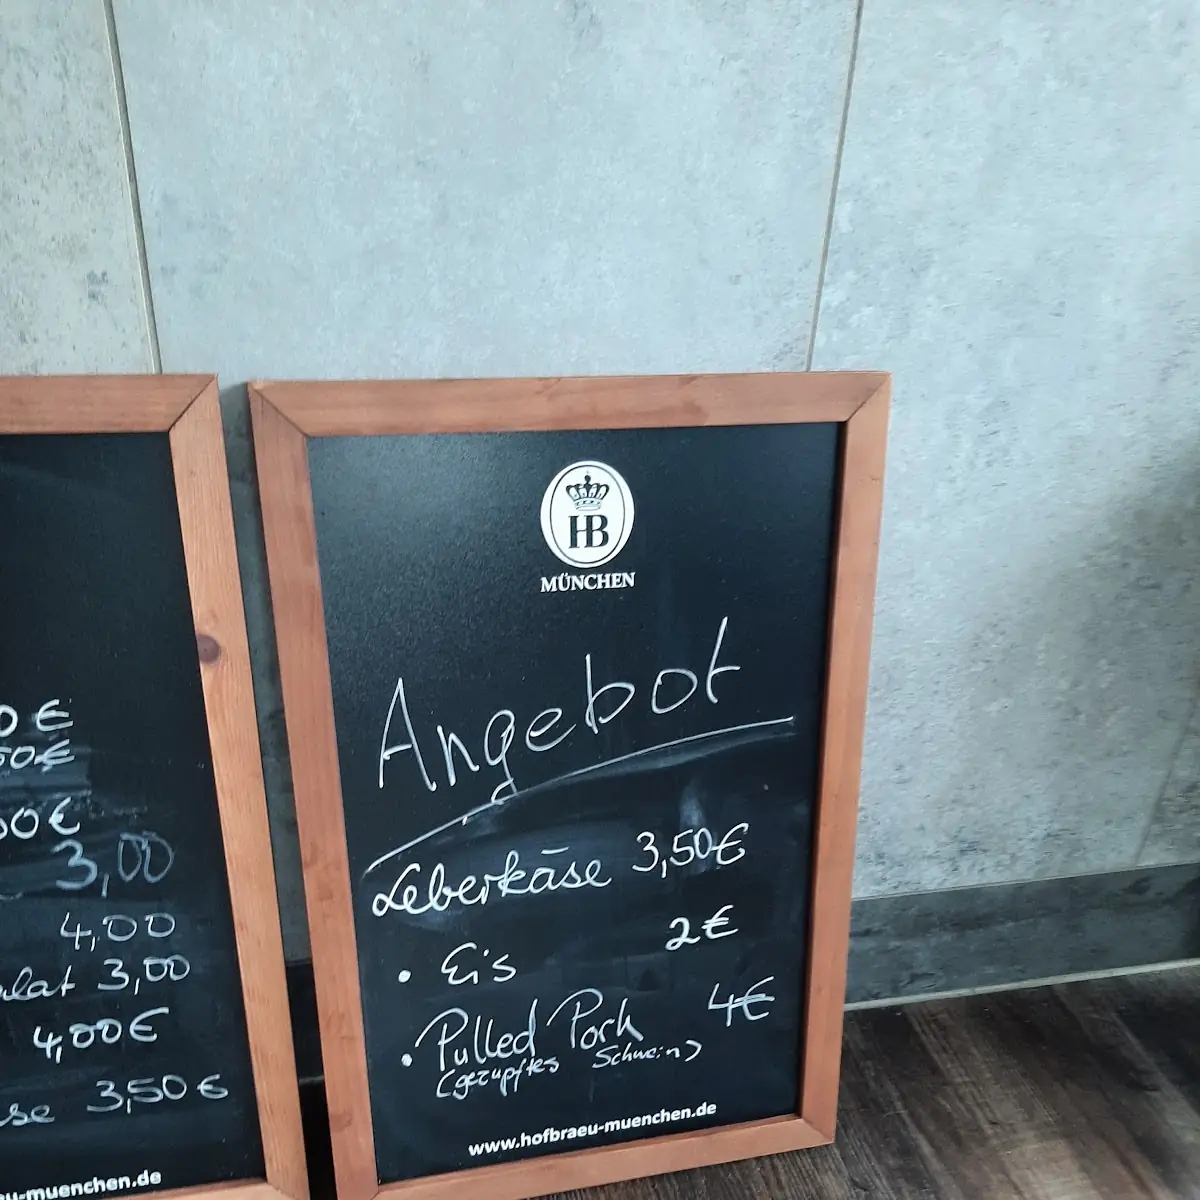 0 €
50 €
00 €
3,00
4,00
3,00
4,00 €
3,50 €
HB
MÜNCHEN
Angebot
Leberkäse 3,50 €
• Eis 2 €
• Pulled Pork 4 €
(gezupftes Schwein)
www.hofbraeu-muenchen.de